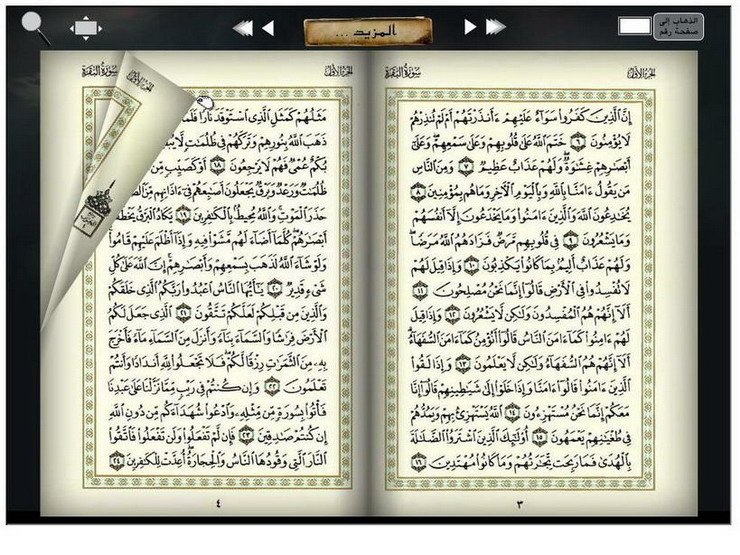 الذهاب إلى
صفحة رقم
المزيد ...
الجزء الأول
سورة البقرة
إِنَّ الَّذِينَ كَفَرُوا سَوَآءٌ عَلَيْهِمْ ءَأَنذَرْتَهُمْ أَمْ لَمْ تُنذِرْهُمْ
لَا يُؤْمِنُونَ ٦ خَتَمَ اللَّهُ عَلَىٰ قُلُوبِهِمْ وَعَلَىٰ سَمْعِهِمْ وَعَلَىٰ
أَبْصَٰرِهِمْ غِشَٰوَةٌ وَلَهُمْ عَذَابٌ عَظِيمٌ ٧ وَمِنَ النَّاسِ
مَن يَقُولُ ءَامَنَّا بِاللَّهِ وَبِالْيَوْمِ الْءَاخِرِ وَمَا هُم بِمُؤْمِنِينَ ٨
يُخَٰدِعُونَ اللَّهَ وَالَّذِينَ ءَامَنُوا وَمَا يَخْدَعُونَ إِلَّا أَنفُسَهُمْ
وَمَا يَشْعُرُونَ ٩ فِي قُلُوبِهِم مَّرَضٌ فَزَادَهُمُ اللَّهُ مَرَضًا
وَلَهُمْ عَذَابٌ أَلِيمٌ بِمَا كَانُوا يَكْذِبُونَ ١٠ وَإِذَا قِيلَ لَهُمْ
لَا تُفْسِدُوا فِي الْأَرْضِ قَالُوا إِنَّمَا نَحْنُ مُصْلِحُونَ ١١
أَلَآ إِنَّهُمْ هُمُ الْمُفْسِدُونَ وَلَٰكِن لَّا يَشْعُرُونَ ١٢ وَإِذَا قِيلَ
لَهُمْ ءَامِنُوا كَمَآ ءَامَنَ النَّاسُ قَالُوا أَنُؤْمِنُ كَمَآ ءَامَنَ السُّفَهَآءُ
أَلَآ إِنَّهُمْ هُمُ السُّفَهَآءُ وَلَٰكِن لَّا يَعْلَمُونَ ١٣ وَإِذَا لَقُوا
الَّذِينَ ءَامَنُوا قَالُوا ءَامَنَّا وَإِذَا خَلَوْا إِلَىٰ شَيَٰطِينِهِمْ قَالُوا إِنَّا
مَعَكُمْ إِنَّمَا نَحْنُ مُسْتَهْزِءُونَ ١٤ اللَّهُ يَسْتَهْزِئُ بِهِمْ وَيَمُدُّهُمْ
فِي طُغْيَٰنِهِمْ يَعْمَهُونَ ١٥ أُولَٰٓئِكَ الَّذِينَ اشْتَرَوُا الضَّلَٰلَةَ
بِالْهُدَىٰ فَمَا رَبِحَت تِّجَٰرَتُهُمْ وَمَا كَانُوا مُهْتَدِينَ ١٦
٣
الجزء الأول
سورة البقرة
مَثَلُهُمْ كَمَثَلِ الَّذِي اسْتَوْقَدَ نَارًا فَلَمَّا
ذَهَبَ اللَّهُ بِنُورِهِمْ وَتَرَكَهُمْ فِي ظُلُمَٰتٍ لَّا
بُكْمٌ عُمْيٌ فَهُمْ لَا يَرْجِعُونَ ١٨ أَوْ كَصَيِّبٍ مِّنَ
ظُلُمَٰتٌ وَرَعْدٌ وَبَرْقٌ يَجْعَلُونَ أَصَٰبِعَهُمْ فِي ءَاذَانِهِم مِّنَ
حَذَرَ الْمَوْتِ وَاللَّهُ مُحِيطٌ بِالْكَٰفِرِينَ ١٩ يَكَادُ الْبَرْقُ يَخْطَفُ
أَبْصَٰرَهُمْ كُلَّمَآ أَضَآءَ لَهُم مَّشَوْا فِيهِ وَإِذَآ أَظْلَمَ عَلَيْهِمْ قَامُوا
وَلَوْ شَآءَ اللَّهُ لَذَهَبَ بِسَمْعِهِمْ وَأَبْصَٰرِهِمْ إِنَّ اللَّهَ عَلَىٰ كُلِّ
شَيْءٍ قَدِيرٌ ٢٠ يَٰٓأَيُّهَا النَّاسُ اعْبُدُوا رَبَّكُمُ الَّذِي خَلَقَكُمْ
وَالَّذِينَ مِن قَبْلِكُمْ لَعَلَّكُمْ تَتَّقُونَ ٢١ الَّذِي جَعَلَ لَكُمُ
الْأَرْضَ فِرَٰشًا وَالسَّمَآءَ بِنَآءً وَأَنزَلَ مِنَ السَّمَآءِ مَآءً فَأَخْرَجَ
بِهِ مِنَ الثَّمَرَٰتِ رِزْقًا لَّكُمْ فَلَا تَجْعَلُوا لِلَّهِ أَندَادًا وَأَنتُمْ
تَعْلَمُونَ ٢٢ وَإِن كُنتُمْ فِي رَيْبٍ مِّمَّا نَزَّلْنَا عَلَىٰ عَبْدِنَا
فَأْتُوا بِسُورَةٍ مِّن مِّثْلِهِ وَادْعُوا شُهَدَآءَكُم مِّن دُونِ اللَّهِ
إِن كُنتُمْ صَٰدِقِينَ ٢٣ فَإِن لَّمْ تَفْعَلُوا وَلَن تَفْعَلُوا فَاتَّقُوا
النَّارَ الَّتِي وَقُودُهَا النَّاسُ وَالْحِجَارَةُ أُعِدَّتْ لِلْكَٰفِرِينَ ٢٤
٤
الجزء الأول
سورة البقرة